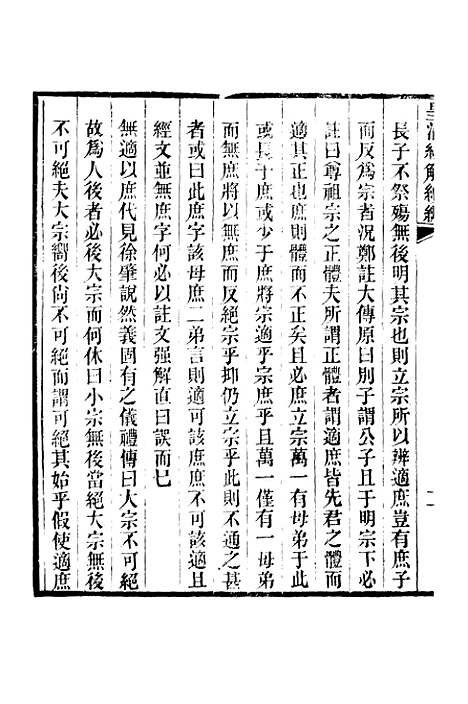 皇淸經解續編
長子不祭殤無後明其宗也則立宗所以辨適庶豈有庶子
而反爲宗者況鄭註大傳原曰別子謂公子且于明宗下必
註曰尊祖宗之正體夫所謂正體者謂適庶皆先君之體而
適其正也庶則體而不正矣且必庶立宗萬一有母弟于此
或長于庶或少于庶將宗適乎宗庶乎且萬一僅有一母弟
而無庶將以無庶而反絕宗乎抑仍立宗乎此則不通之甚
者或曰此庶字該母庶二弟言則適可該庶庶不可該適且
經文並無庶字何必以註文强解直曰誤而已
無適以庶代見徐肇說然義固有之儀禮傳曰大宗不可絕
故爲人後者必後大宗而何休曰小宗無後當絕大宗無後
不可絕夫大宗嗣後尙不可絕而謂可絕其始乎假使適庶